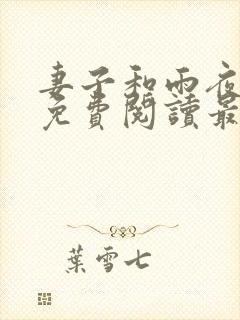 妻子和雨夜
免費閱讀最
葉雪七